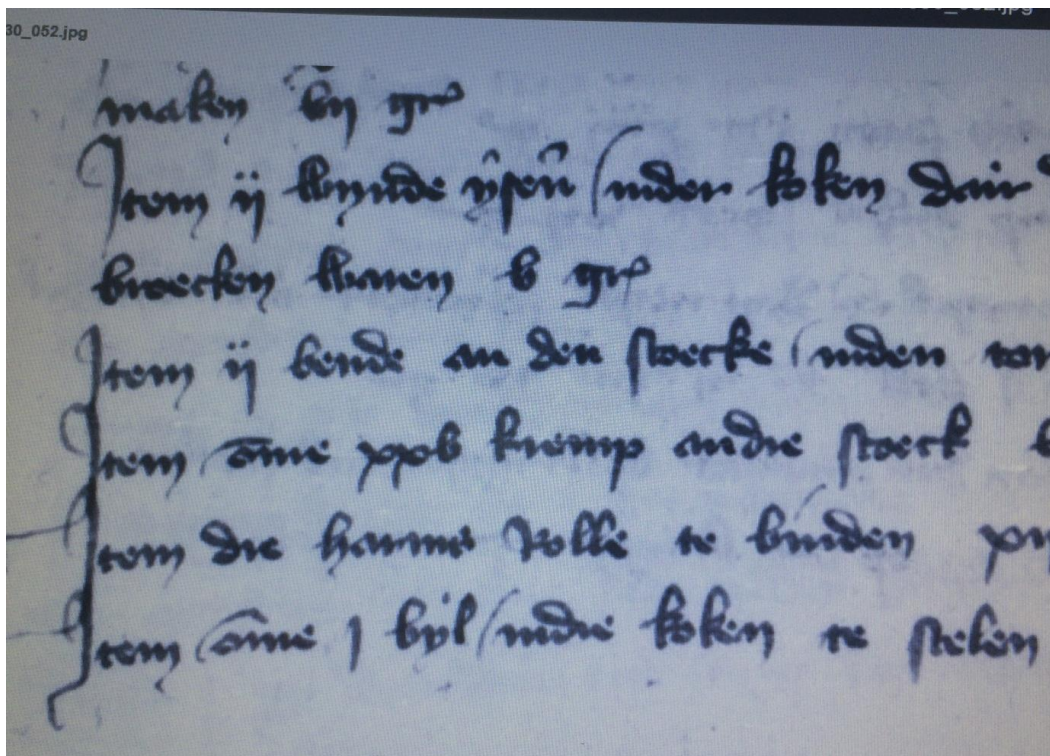 30_052.jpg
maken vij gr
Item ij wynde ysen inder koken dair
broecken waren v gr
Item ij bende an den stoecke inden
Item ome xxv kremp andie stoeck
Item die Rolle te binden
Item ome j byl indie koken te stelen